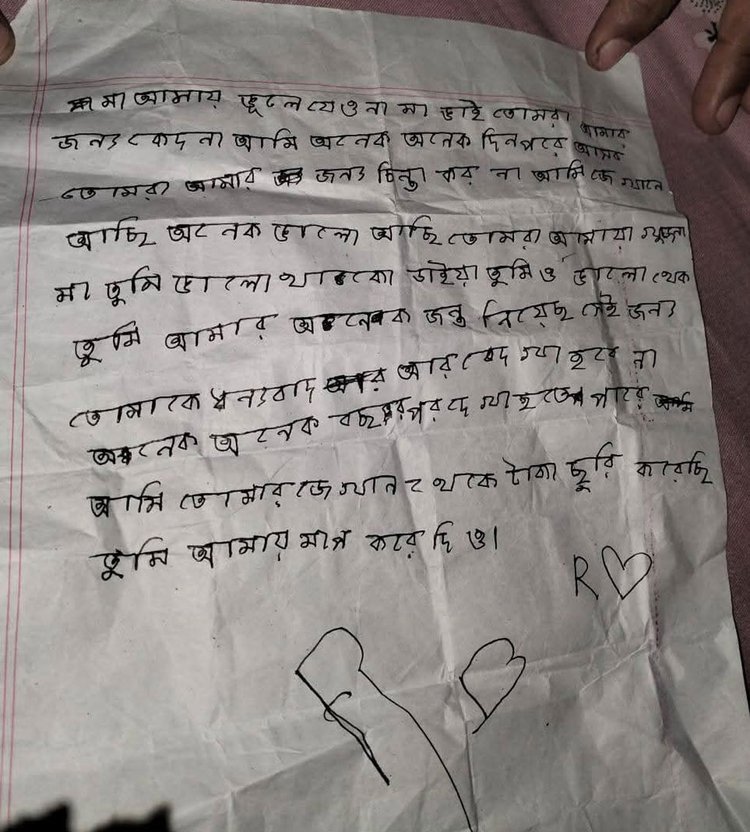 মা আমায় ভুলে যেও না মা ভাই তোমরা আমার
জন্য কেদ না আমি অনেক অনেক দিন পরে আসব
তোমরা আমার জন্য চিন্তা কর না আমি জে খানে
আছি অনেক ভালো আছি তোমরা আমায় খুজনা
মা তুমি ভালো থাকো ভাইয়া তুমি ও ভালো থেক
তুমি আমার অনেক জন্ত নিয়েছ সেই জন্য
তোমাকে ধন্যবাদ আর দেখা হবে না
অনেক অনেক বছর পর দেখা হতে পারে
আমি তোমার জেখান থেকে টাকা চুরি করেছি
তুমি আমায় মাপ করে দিও।
R